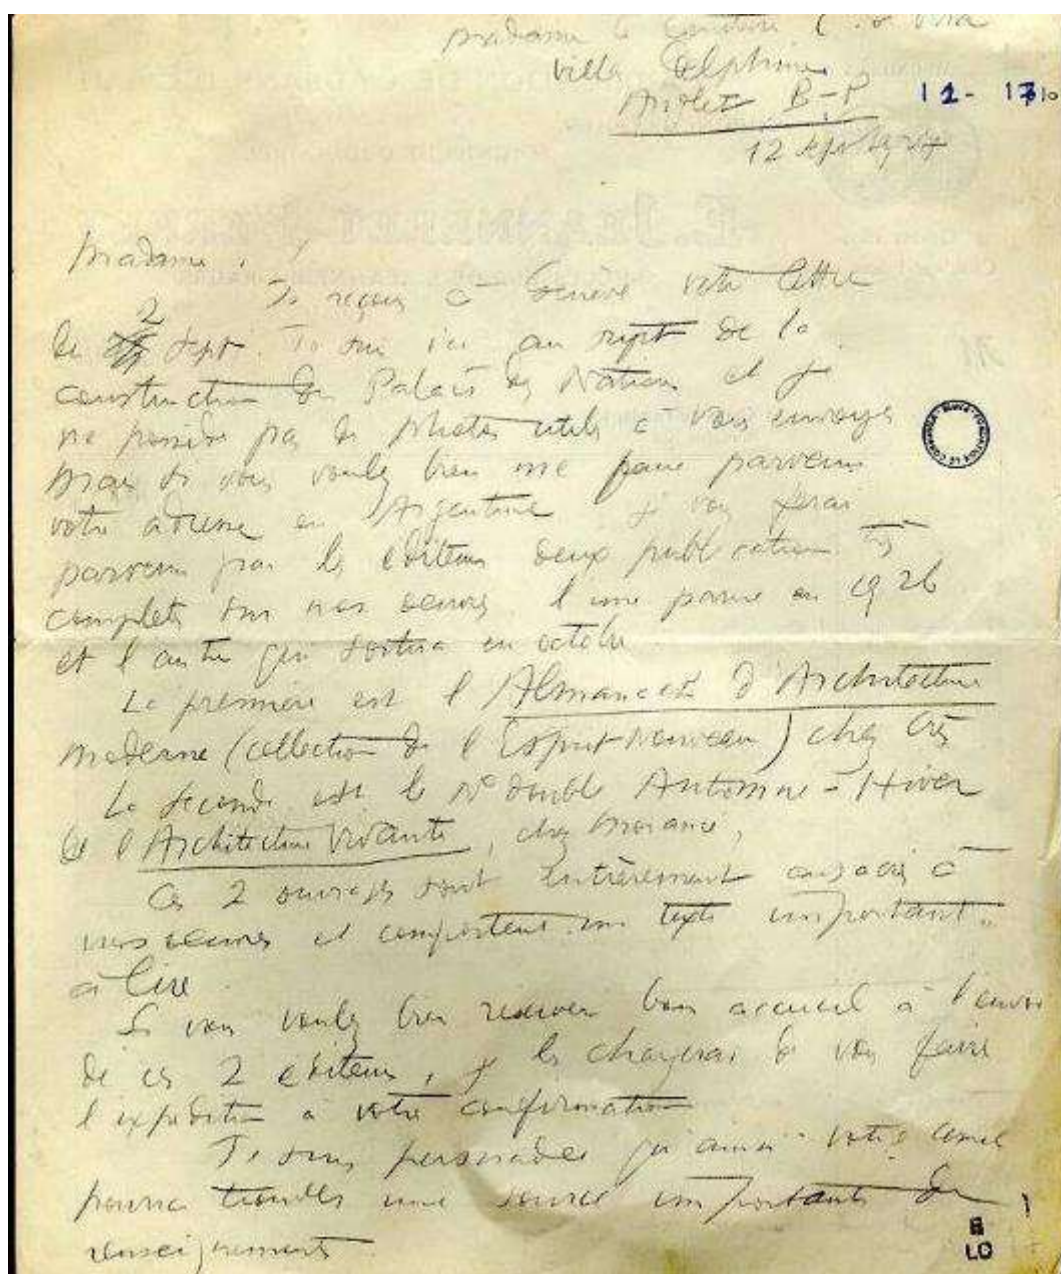 Madame la
Villa Delphine
Anglet B-P
12 sept 1927
I2- I7
Madame,
Je reçois à Genève votre lettre
du 2 sept. Je suis ici au sujet de la
construction du Palais des Nations et je
ne possède pas de photos utiles à vous envoyer
Mais si vous voulez bien me faire parvenir
votre adresse en Argentine je vous ferai
parvenir par les éditeurs deux publications très
complètes sur nos œuvres l'une parue en 1926
et l'autre qui sortira en octobre.
La première est l'Almanach d'Architecture
moderne (collection de l'Esprit Nouveau) chez Crès
La seconde est le N° double Automne-Hiver
de l'Architecture Vivante, chez Morancé,
Ces 2 ouvrages sont entièrement consacrés à
nos œuvres et comportent un texte important
à lire.
Si vous voulez bien réserver bon accueil à l'envoi
de ces 2 éditeurs, je les chargerai de vous faire
l'expédition à votre confirmation
Je suis persuadé qu'ainsi votre
pourra trouver une source importante de
renseignements.
LC